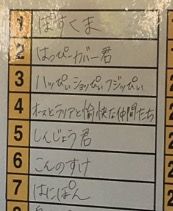 1 ぽすくま
2 はっぴぃがー君
3 ハッピィショッピィフジッピィ
4 オーストラリアと愉快な仲間たち
5 しんじょう君
6 こんのすけ
7 はにぽん
8